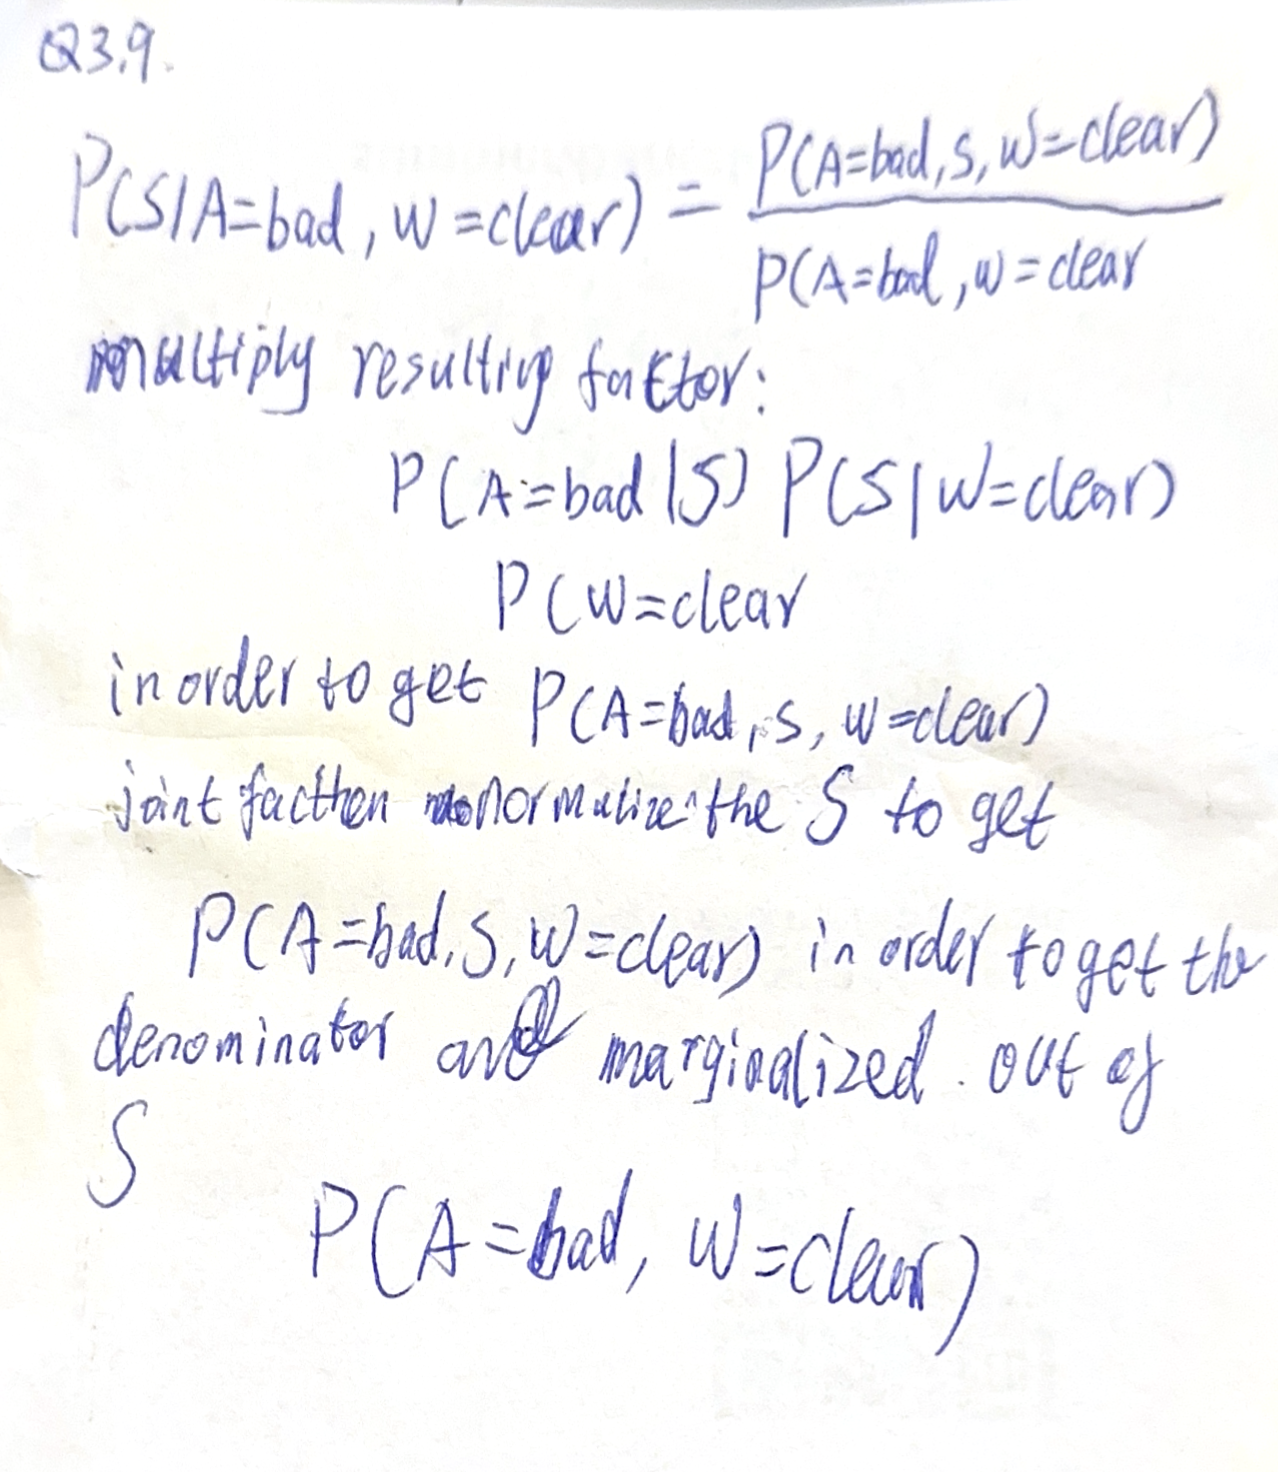 Q3.9.
P(S|A=bad, W=clear) = P(A=bad, S, W=clear)
P(A=bad, W=clear
multiply resulting factor:
P(A=bad|S) P(S|W=clear)
P(W=clear
in order to get P(A=bad, S, W=clear)
joint facthen normalize the S to get
P(A=bad, S, W=clear) in order to get the
denominator and marginalized. out of
S
P(A=bad, W=clear)